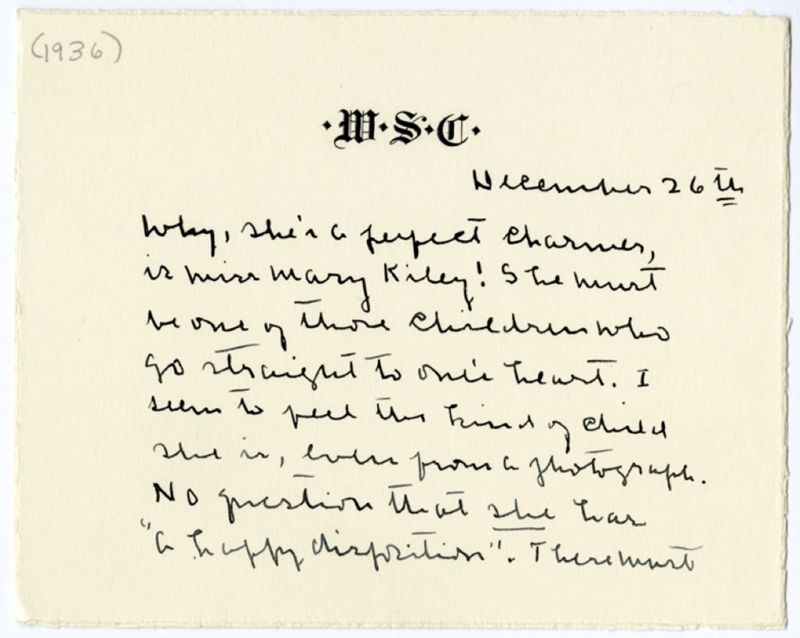 (1936)
·W·S·C·
December 26th
Why, she's a perfect charmer,
is Miss Mary Kiley! She must
be one of those children who
go straight to one's heart. I
seem to feel the kind of child
she is, even from a photograph.
No question that she has
"a happy disposition". There must